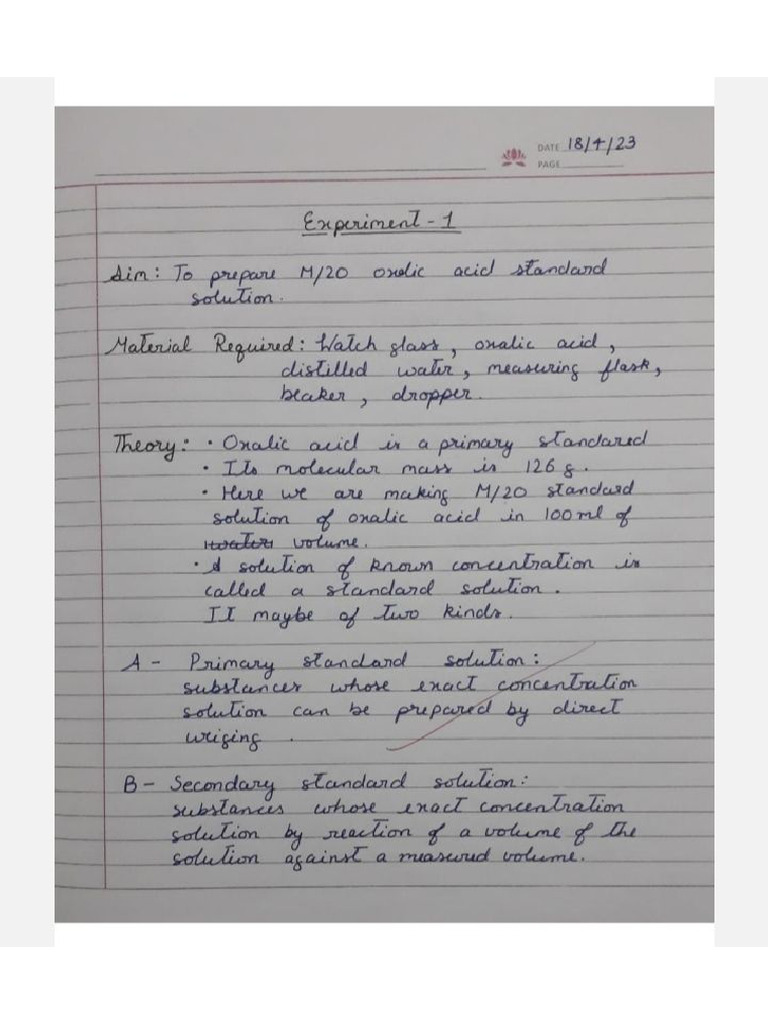 DATE 18/4/23
PAGE
Experiment - 1
Aim: To prepare M/20 oxalic acid standard
solution.
Material Required: Watch glass, oxalic acid,
distilled water, measuring flask,
beaker, dropper.
Theory: • Oxalic acid is a primary standared
• Its molecular mass is 126 g.
• Here we are making M/20 standard
solution of oxalic acid in 100 ml of
water volume.
• A solution of known concentration is
called a standard solution.
It maybe of two kinds.
A - Primary standard solution:
substances whose exact concentration
solution can be prepared by direct
wriging.
B - Secondary standard solution:
substances whose exact concentration
solution by reaction of a volume of the
solution against a measured volume.